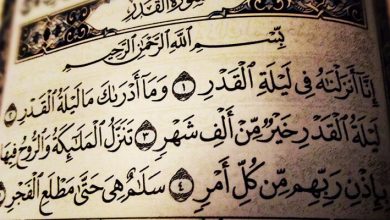 سورة القدر
بِسْمِ اللَّهِ الرَّحْمَٰنِ الرَّحِيمِ
إِنَّا أَنزَلْنَاهُ فِي لَيْلَةِ الْقَدْرِ ١ وَمَا أَدْرَاكَ مَا لَيْلَةُ الْقَدْرِ ٢
لَيْلَةُ الْقَدْرِ خَيْرٌ مِّنْ أَلْفِ شَهْرٍ ٣ تَنَزَّلُ الْمَلَائِكَةُ وَالرُّوحُ فِيهَا
بِإِذْنِ رَبِّهِم مِّن كُلِّ أَمْرٍ ٤ سَلَامٌ هِيَ حَتَّىٰ مَطْلَعِ الْفَجْرِ